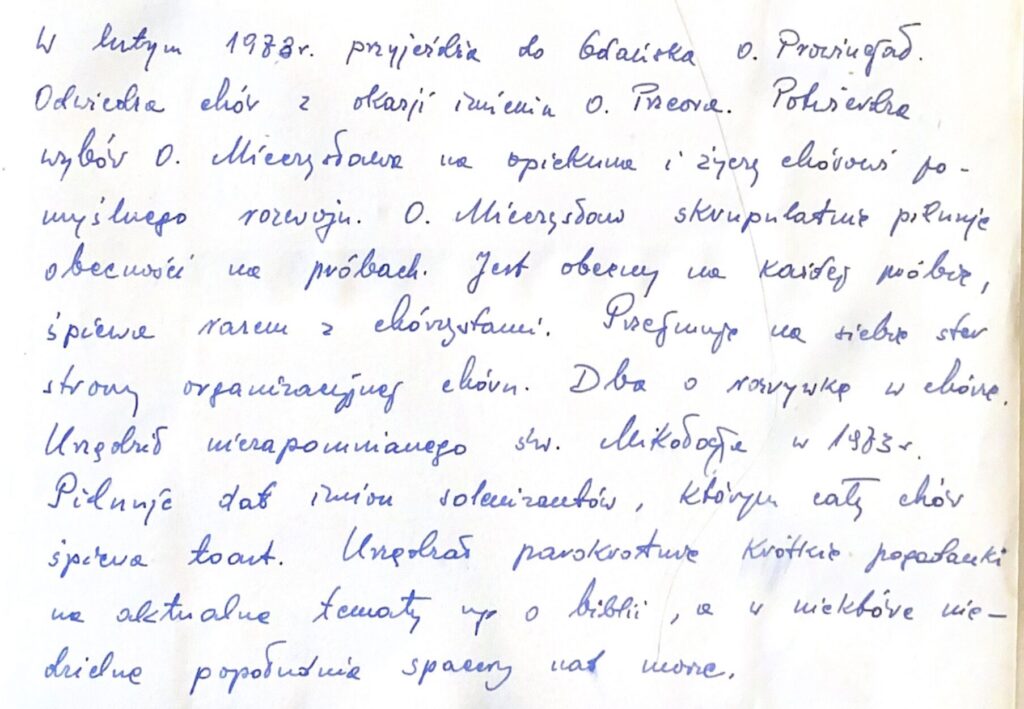 W lutym 1973r. przyjeżdża do Gdańska O. Prowincjał.
Odwiedza chór z okazji imienin O. Przeora. Potwierdza
wybór O. Mieczysława na opiekuna i życzy chórowi po-
myślnego rozwoju. O. Mieczysław skrupulatnie pilnuje
obecności na próbach. Jest obecny na każdej próbie,
śpiewa razem z chórzystami. Przejmuje na siebie ster
strony organizacyjnej chóru. Dba o rozrywkę w chórze.
Urządził niezapomnianego św. Mikołaja w 1973r.
Pilnuje dat imion solenizantów, którym cały chór
śpiewa toast. Urządzał parokrotnie krótkie pogadanki
na aktualne tematy np o biblii, a w niektóre nie-
dzielne popołudnia spacery nad morze.